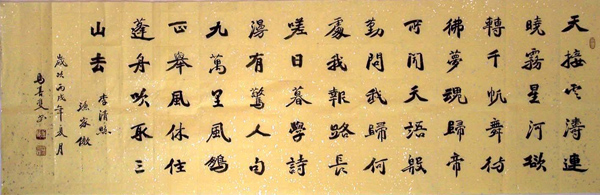 天接雲濤連
曉霧星河欲
轉千帆舞彷
彿夢魂歸帝
所聞天語殷
勤問我歸何
處我報路長
嗟日暮學詩
漫有驚人句
九萬里風鵬
正舉風休住
蓬舟吹取三
山去
李清照
漁家傲
歲次丙戌年夏月